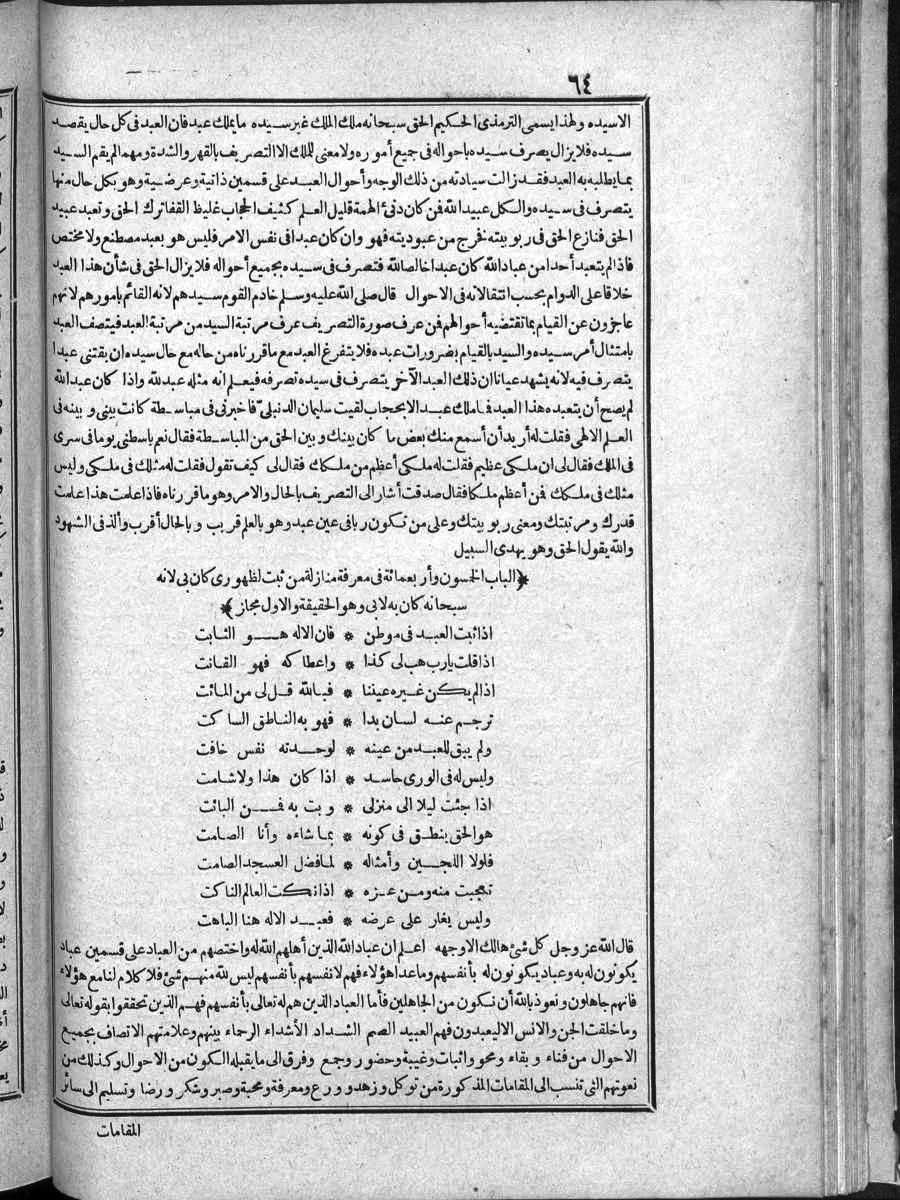 ٦٤
الاسيده ولهذا يسمى الترمذى الحكيم الحق سبحانه ملك الملك غير سيده ما يملك عبد فان العبد فى كل حال يقصد
سيده فلا يزال يصرف سيده باحواله فى جميع أموره ولا معنى للملك الا التصريف بالقهر والشدة ومهما لم يقم السيد
بما يطلبه به العبد فقد زالت سيادته من ذلك الوجه وأحوال العبد على قسمين ذاتية وعرضية وهو بكل حال منها
يتصرف فى سيده والكل عبيد الله فمن كان دنىء الهمة قليل العلم كثيف الحجاب غليظ القفا ترك الحق وتعبد عبيد
الحق فنازع الحق فى ربوبيته فخرج من عبوديته فهو وان كان عبدا فى نفس الامر فليس هو بعبد مصطنع ولا مختص
فاذا لم يتعبد أحدا من عباد الله كان عبدا خالصا لله فتصرف فى سيده بجميع أحواله فلا يزال الحق فى شأن هذا العبد
خلاقا على الدوام بحسب انتقالاته فى الاحوال قال صلى الله عليه وسلم خادم القوم سيدهم لانه القائم بامورهم لانهم
عاجزون عن القيام بما تقتضيه أحوالهم فمن عرف صورة التصريف عرف مرتبة السيد من مرتبة العبد فيتصف العبد
بامتثال أمر سيده والسيد بالقيام بضرورات عبده فلا يتفرغ العبد مع ما قررناه من حاله مع حال سيده ان يقتنى عبدا
يتصرف فيه لانه يشهد عيانا ان ذلك العبد الآخر يتصرف فى سيده تصرفه فيعلم انه مثله عبد لله واذا كان عبد الله
لم يصح أن يتعبده هذا العبد فما ملك عبد الا بحجاب لقيت سليمان الدنبلىّ فاخبرنى فى مباسطة كانت بينى وبينه فى
العلم الالهى فقلت له أريد أن أسمع منك بعض ما كان بينك وبين الحق من المباسطة فقال نعم باسطنى يوما فى سرى
فى الملك فقال لى ان ملكى عظيم فقلت له ملكى أعظم من ملكك فقال لى كيف تقول فقلت له مثلك فى ملكى وليس
مثلك فى ملكك فمن أعظم ملكا فقال صدقت أشار الى التصريف بالحال والامر وهو ما قررناه فاذا علمت هذا علمت
قدرك ومرتبتك ومعنى ربوبيتك وعلى من تكون ربا فى عين عبد وهو بالعلم قريب وبالحال أقرب وألذ فى الشهود
والله يقول الحق وهو يهدى السبيل
﴿الباب الخمسون وأربعمائة فى معرفة منازلة من ثبت لظهورى كان بى لانه
سبحانه كان به لا بى وهو الحقيقة والاول مجاز﴾
اذا ثبت العبد فى موطن * فان الاله هو الثابت
اذا قلت يارب هب لى كذا * واعطا كه فهو القانت
اذا لم يكن غيره عيننا * فبالله قل لى من المائت
ترجم عنه لسان بدا * فهو به الناطق الساكت
ولم يبق للعبد من عينه * لوحدته نفس خافت
وليس له فى الورى حاسد * اذا كان هذا ولا شامت
اذا جئت ليلا الى منزلى * وبت به فمن البائت
هو الحق ينطق فى كونه * بما شاءه وأنا الصامت
فلولا اللجين وأمثاله * لما فضل العسجد الصامت
تعجبت منه ومن عزه * اذا نكت العالم الناكت
وليس يغار على عرضه * فعبد الاله هنا الباهت
قال الله عز وجل كل شئ هالك الا وجهه اعلم ان عباد الله الذين أهلهم الله له واختصهم من العباد على قسمين عباد
يكونون له به وعباد يكونون له بأنفسهم وما عدا هؤلاء فهم لانفسهم بأنفسهم ليس لله منهم شئ فلا كلام لنا مع هؤلاء
فانهم جاهلون ونعوذ بالله أن نكون من الجاهلين فأما العباد الذين هم له تعالى بأنفسهم فهم الذين تحققوا بقوله تعالى
وما خلقت الجن والانس الا ليعبدون فهم العبيد الصم الشداد الأشداء الرحماء بينهم وعلامتهم الاتصاف بجميع
الاحوال من فناء وبقاء ومحو واثبات وغيبة وحضور وجمع وفرق الى ما يقبله الكون من الاحوال وكذلك من
نعوتهم التى تنسب الى المقامات المذكورة من توكل وزهد وورع ومعرفة ومحبة وصبر وشكر ورضا وتسليم الى سائر
المقامات